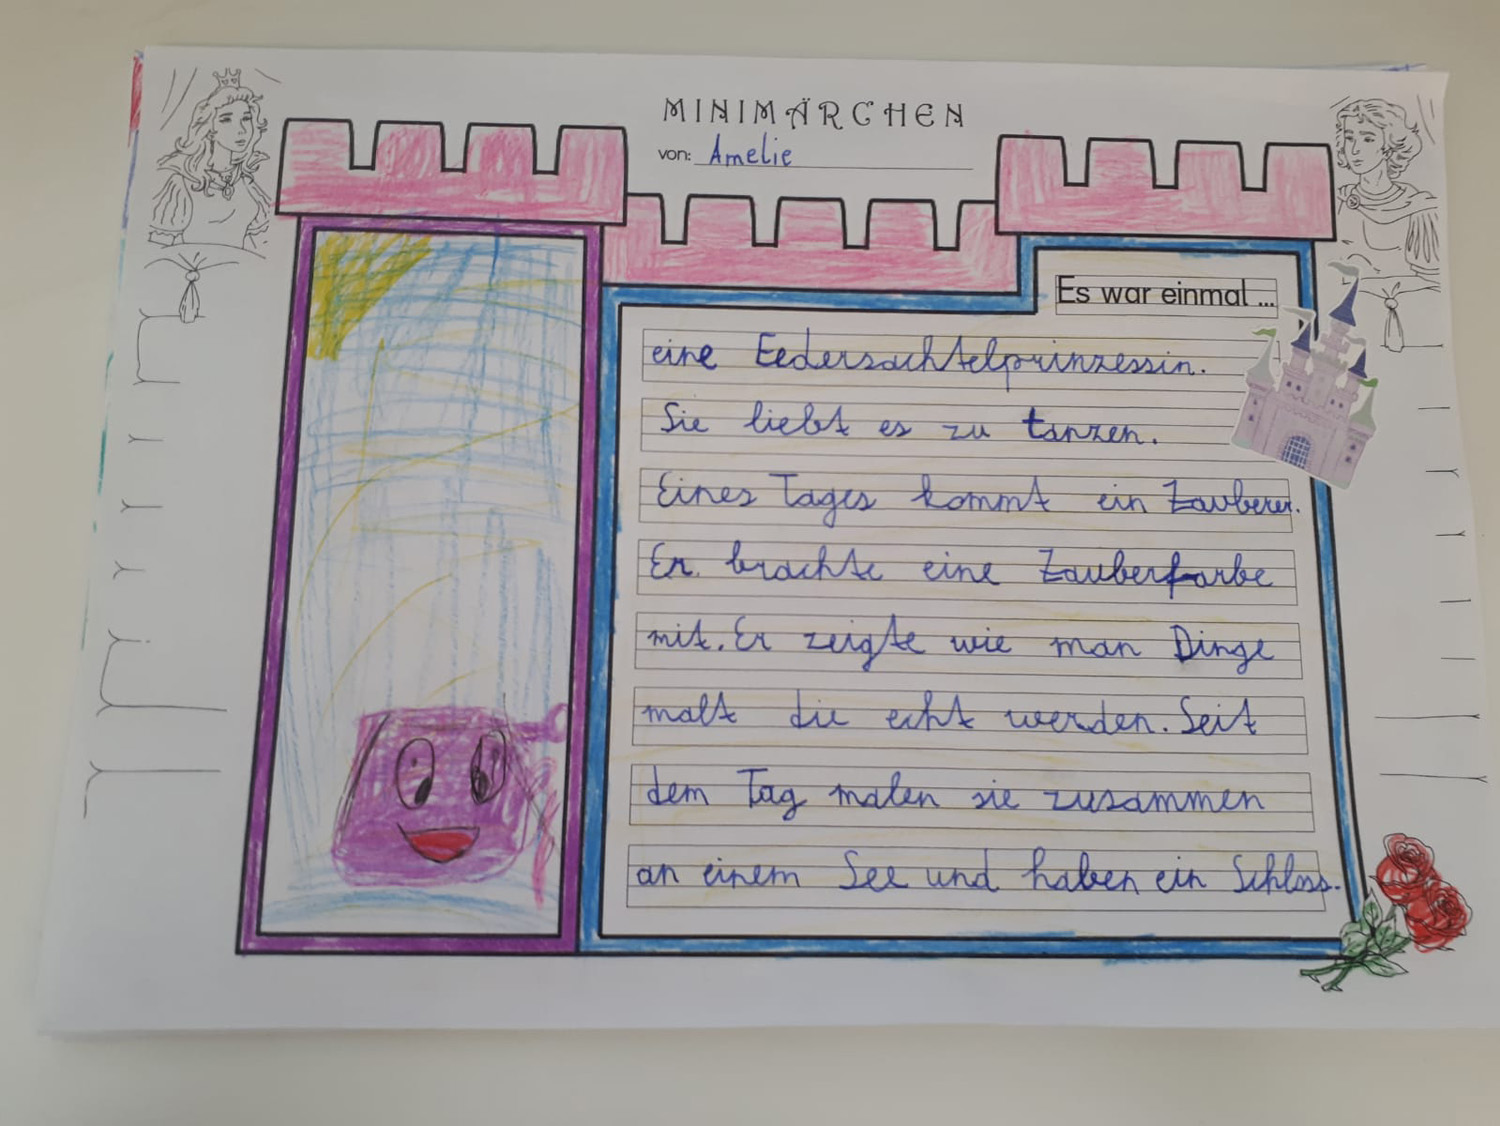 MINIMÄRCHEN
von: Amelie
Es war einmal ...
eine Federschachtelprinzessin.
Sie liebt es zu tanzen.
Eines Tages kommt ein Zauberer.
Er brachte eine Zauberfarbe
mit. Er zeigte wie man Dinge
malt die echt werden. Seit
dem Tag malen sie zusammen
an einem See und haben ein Schloss.